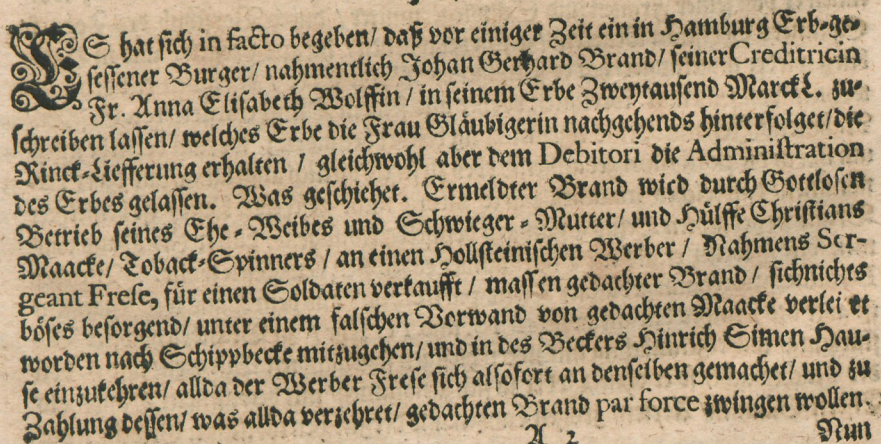 ES hat sich in facto begeben/ daß vor einiger Zeit ein in Hamburg Erb-ge-
sessener Burger/ nahmentlich Johan Gerhard Brand/ seiner Creditricin
Fr. Anna Elisabeth Wolffin / in seinem Erbe Zweytausend Marck L. zu-
schreiben lassen/ welches Erbe die Frau Gläubigerin nachgehends hinterfolget/ die
Rinck-Liefferung erhalten / gleichwohl aber dem Debitori die Administration
des Erbes gelassen. Was geschiehet. Ermeldter Brand wird durch Gottlosen
Betrieb seines Ehe-Weibes und Schwieger-Mutter/ und Hülffe Christians
Maacke/ Toback-Spinners / an einen Hollsteinischen Werber / Nahmens Ser-
geant Frese, für einen Soldaten verkaufft / massen gedachter Brand / sich nichts
böses besorgend/ unter einem falschen Vorwand von gedachten Maacke verlei et
worden nach Schippbecke mitzugehen/ und in des Beckers Hinrich Simen Hau-
se einzukehren/ allda der Werber Frese sich alsofort an denselben gemachet/ und zu
Zahlung dessen/ was allda verzehret/ gedachten Brand par force zwingen wollen.
A 2
Nun